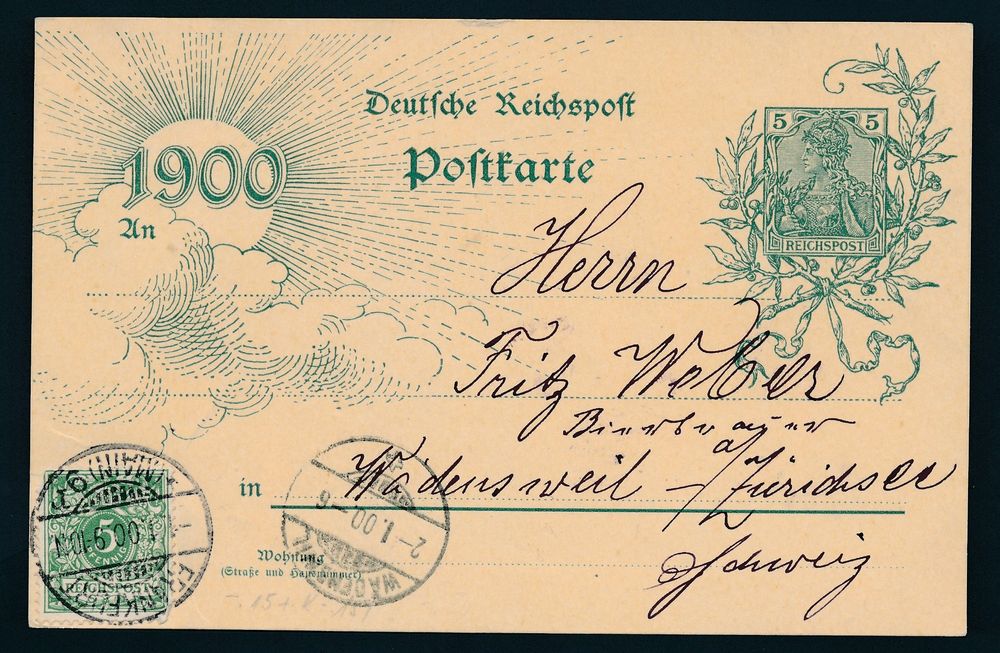 Deutsche Reichspost
Postkarte
5 5
REICHSPOST
1900
An
Herrn
Fritz Weber
Bierbrauer
Wädensweil a/Zürichsee
in
Schweiz
Wohnung
(Straße und Hausnummer)
5
REICHSPOST
(MAIN)
1.00.9-10
2-1.00.-6